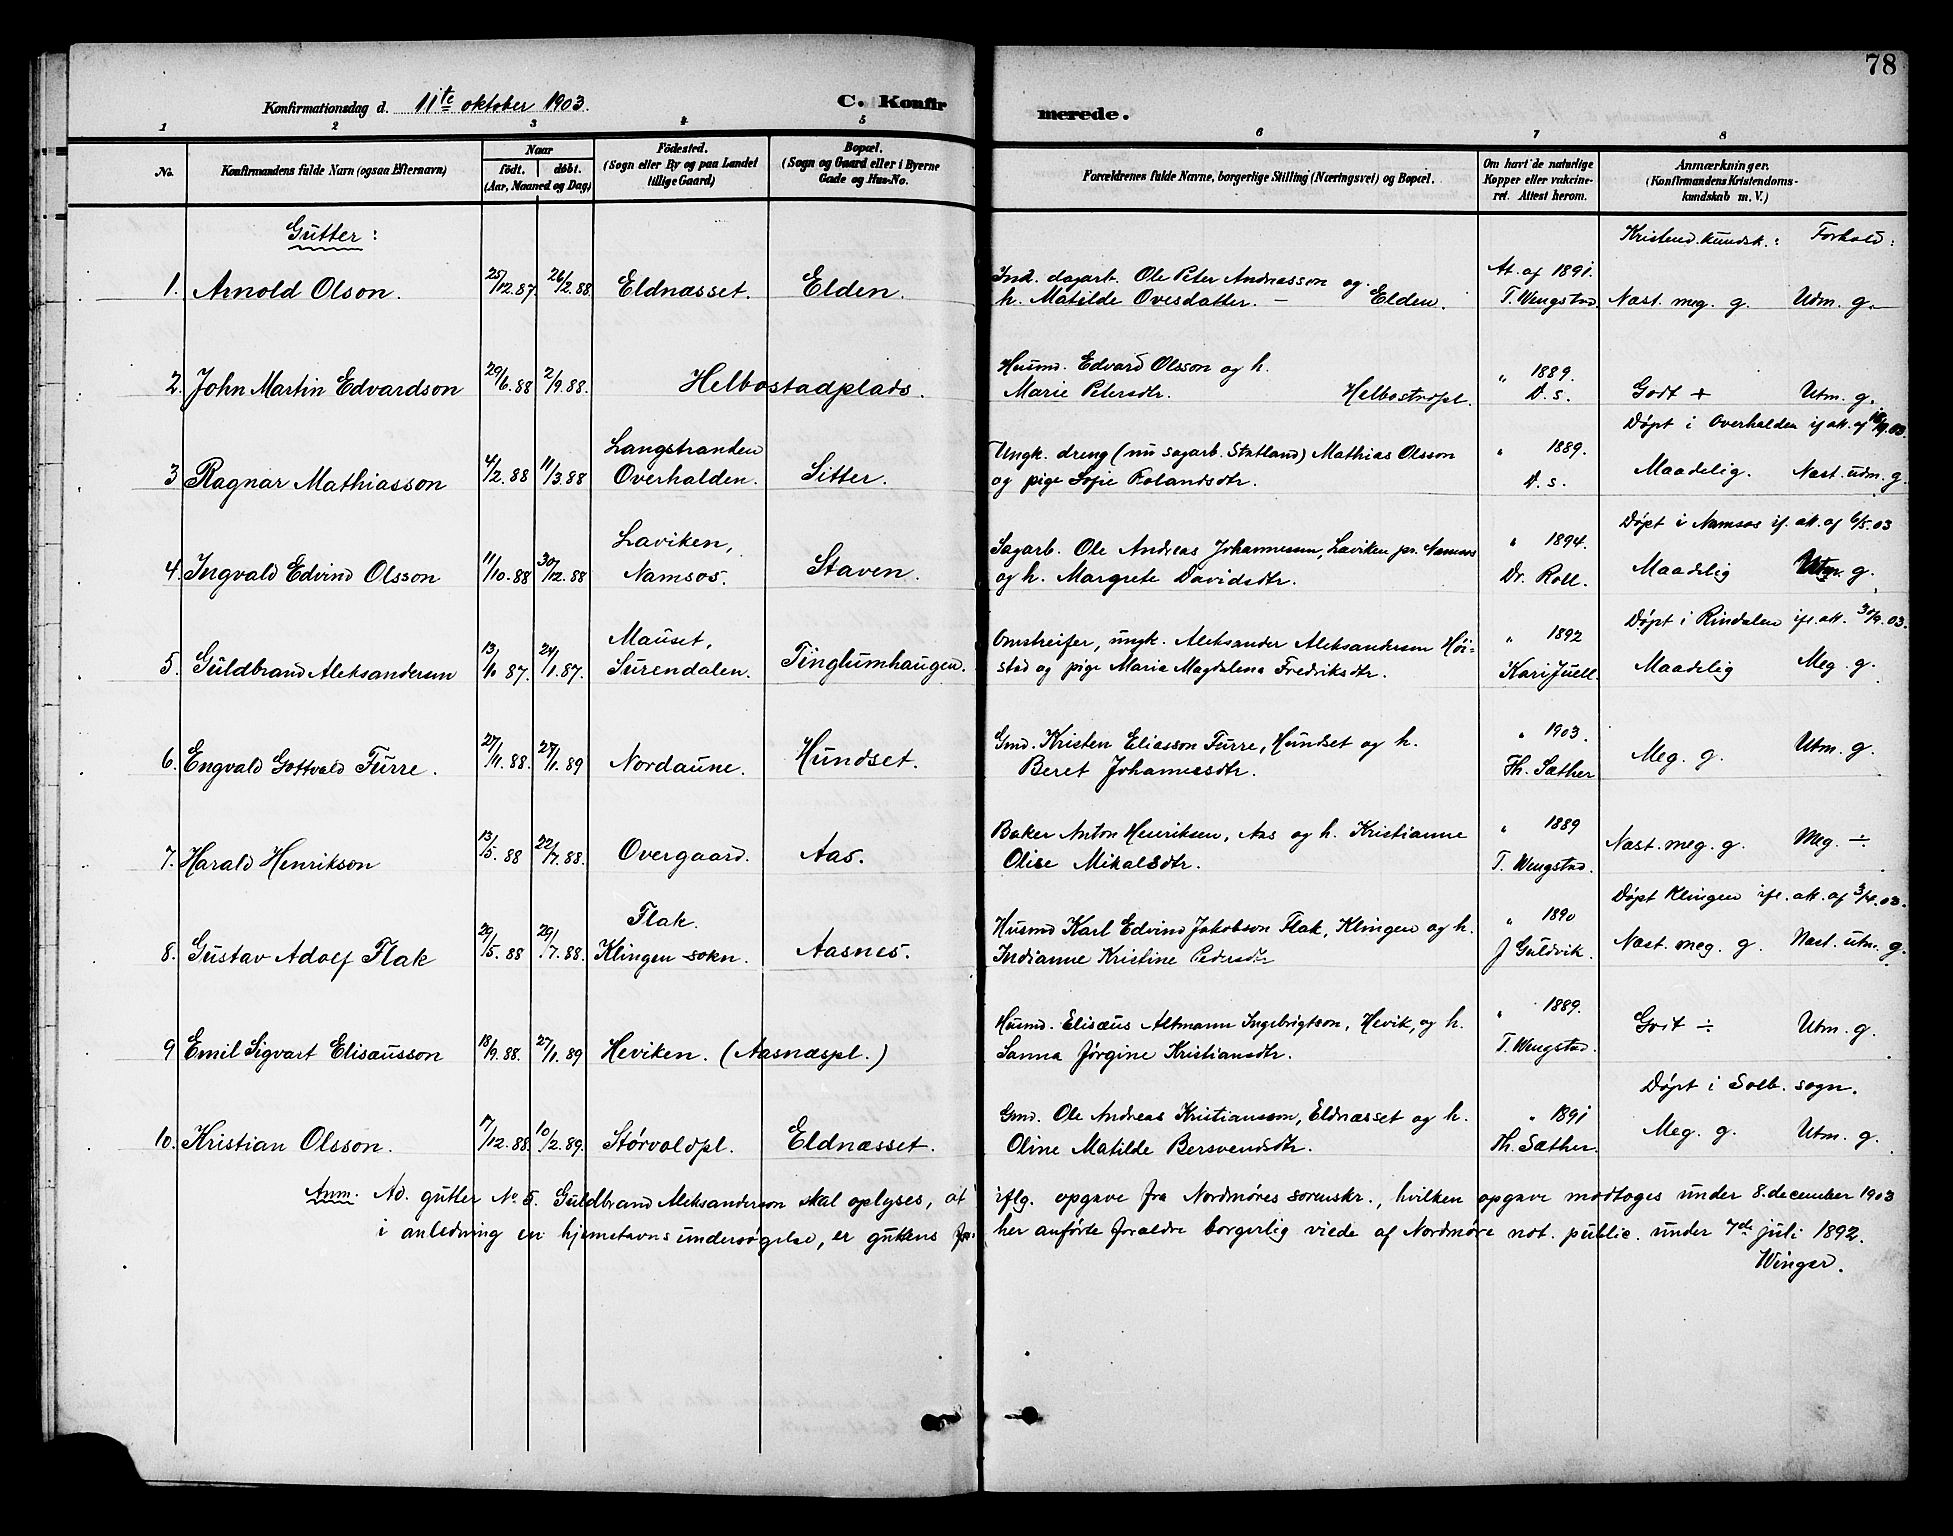 78
Konfirmationsdag d. 11te oktober 1903.
C. Konfirmerede.
1 2 3 4 5 6 7 8
No. Konfirmandens fulde Navn (ogsaa Efternavn) Naar født. døbt. (Aar, Maaned og Dag) Fødested. (Sogn eller By og paa Landet tillige Gaard) Bopæl. (Sogn og Gaard eller i Byerne Gade og Hus-No. Forældrenes fulde Navne, borgerlige Stilling (Næringsvei) og Bopæl. Om havt de naturlige Kopper eller vakcineret. Attest herom. Anmærkninger. (Konfirmandens Kristendomskundskab m. V.)
Gutter: Kristend. kundsk.: Forhold:
1. Arnold Olson. 25/12.87. 26/2.88. Eldnæsset. Elden. Ind. dagarb. Ole Peter Andreasson og At. af 1891.
h. Matilde Ovesdatter. — Elden. T. Wengstad. Næst. meg. g. Udm. g.
2. John Martin Edvardson 29/6.88 2/9.88. Helbostadplads. Husmd. Edvard Olsson og h. " 1889.
Marie Petersdtr. Helbostrpl. D. s. Godt + Utm. g.
Døpt i Overhalden if. att. af 18/9.03.
3 Ragnar Mathiasson 4/2.88 11/3.88 Langstranden Overhalden. Sitter. Ungk. dreng (nu sagarb. Statland) Mathias Olsson " 1889.
og pige Sofie Rolandsdtr. D. s. Maadelig. Næst. udm. g.
Døpt i Namsos if. att. af 6/5.03
4. Ingvald Edvind Olsson 11/10.88 30/12.88 Laviken, Namsos. Staven. Sagarb. Ole Andreas Johannessen, Laviken pr. Namsos " 1894.
og h. Margrete Davidsdtr. Dr. Roll. Maadelig Utm. g.
Døpt i Rindalen ifl. att. 30/9.03.
5. Guldbrand Aleksandersen 13/1 87. 24/1.87. Mauset, Surendalen. Tinglumhaugen. Omstreifer, ungk. Aleksander Aleksandersen Høi- " 1892
stad og pige Maria Magdalena Fredriksdtr. Kari Juell. Maadelig Meg. g.
6. Engvald Gottvald Furre. 27/11.88. 27/1.89 Nordaune. Hundset. Gmd. Kristen Eliasson Furre, Hundset og h. " 1903.
Beret Johannesdtr. Th. Sæther Meg. g. Utm. g.
7. Harald Henrikson 13/5.88 22/7.88. Overgaard. Aas. Baker Anton Henriksen, Aas og h. Kristianne " 1889
Olise Mikalsdtr. T. Wengstad. Næst. meg. g. Meg. ÷
Døpt Klingen ifl. att. af 3/4.03.
8. Gustav Adolf Flak 29/5.88 29/7.88. Flak. Klingen sokn. Aasnes. Husmd Karl Edvind Jakobson Flak, Klingen og h. " 1890
Indianne Kristine Pedersdtr J Guldvik. Næst. meg. g. Næst. utm. g.
9 Emil Sigvart Elisæusson 18/9.88. 27/1.89 Heviken. (Aasnæspl.) Husmd. Elisæus Altmann Ingebrigtson, Hevik, og h. " 1889.
Sanna Jørgine Kristiansdtr. T. Wengstad. Godt ÷ Utm. g.
Døpt i Solb. sogn.
10. Kristian Olsson. 17/12.88. 10/2.89. Størvoldpl. Eldnæsset. Gmd. Ole Andreas Kristianssen, Eldnæsset og h. " 1891
Oline Matilde Bersvendsdtr. Th. Sæther. Meg. g. Utm. g.
Anm. Ad. gutter No 5. Guldbrand Aleksanderson skal oplyses, at iflg. opgave fra Nordmøres sorenskr., hvilken opgave modtoges under 8. december 1903
i anledning en hjemstavnsundersøgelse, er guttens for- her anførte foraldre borgerlig viede af Nordmøre not. public. under 7de juli 1892.
Winger.